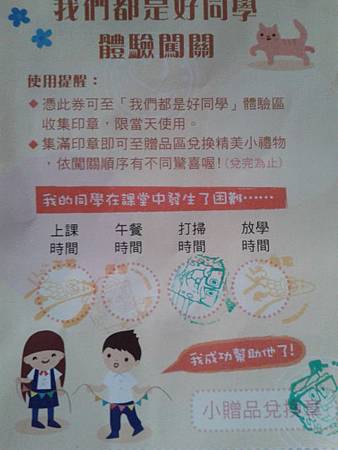 我們都是好同學
體驗闖關
使用提醒：
◆ 憑此券可至「我們都是好同學」體驗區
收集印章，限當天使用。
◆ 集滿印章即可至贈品區兌換精美小禮物
，依闖關順序有不同驚喜喔！(兌完為止)
我的同學在課堂中發生了困難……
上課 午餐 打掃 放學
時間 時間 時間 時間
我成功幫助他了！
小贈品兌換章